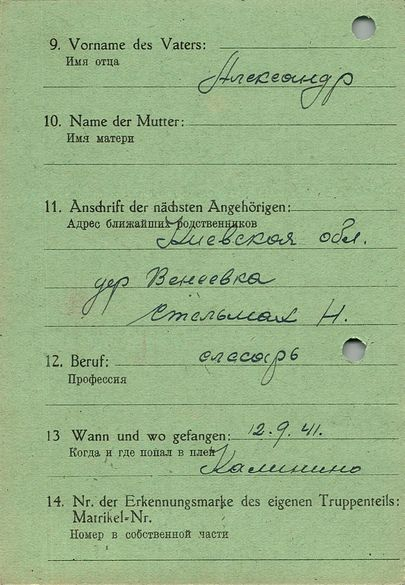 9. Vorname des Vaters:
Имя отца
Александр
10. Name der Mutter:
Имя матери
11. Anschrift der nächsten Angehörigen:
Адрес ближайших родственников
Киевская обл.
дер Венеевка
Стельмах Н.
12. Beruf: слесарь
Профессия
13 Wann und wo gefangen: 12.9.41.
Когда и где попал в плен
Калинино
14. Nr. der Erkennungsmarke des eigenen Truppenteils:
Matrikel-Nr.
Номер в собственной части